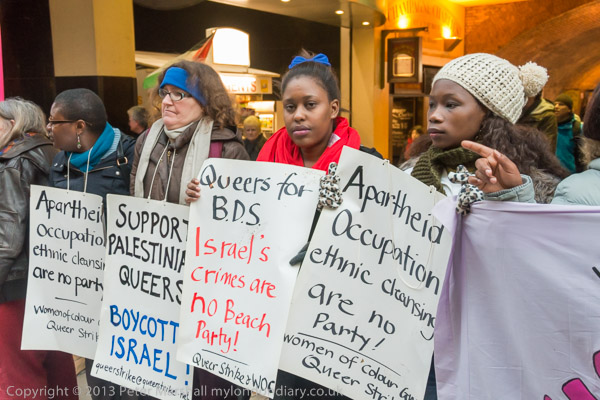 Apartheid
Occupation
ethnic cleansing
are no party
Women of colour
Queer Strike
SUPPORT
PALESTINIAN
QUEERS
BOYCOTT
ISRAEL!
queerstrike@queerstrike
Queers for
BDS
Israel's
crimes are
no Beach
Party!
Queer Strike & WOC
Apartheid
Occupation
ethnic cleansing
are no
Party!
women of colour
Queer Strike
Copyright © 2013 Peter
mylondondiary.co.uk